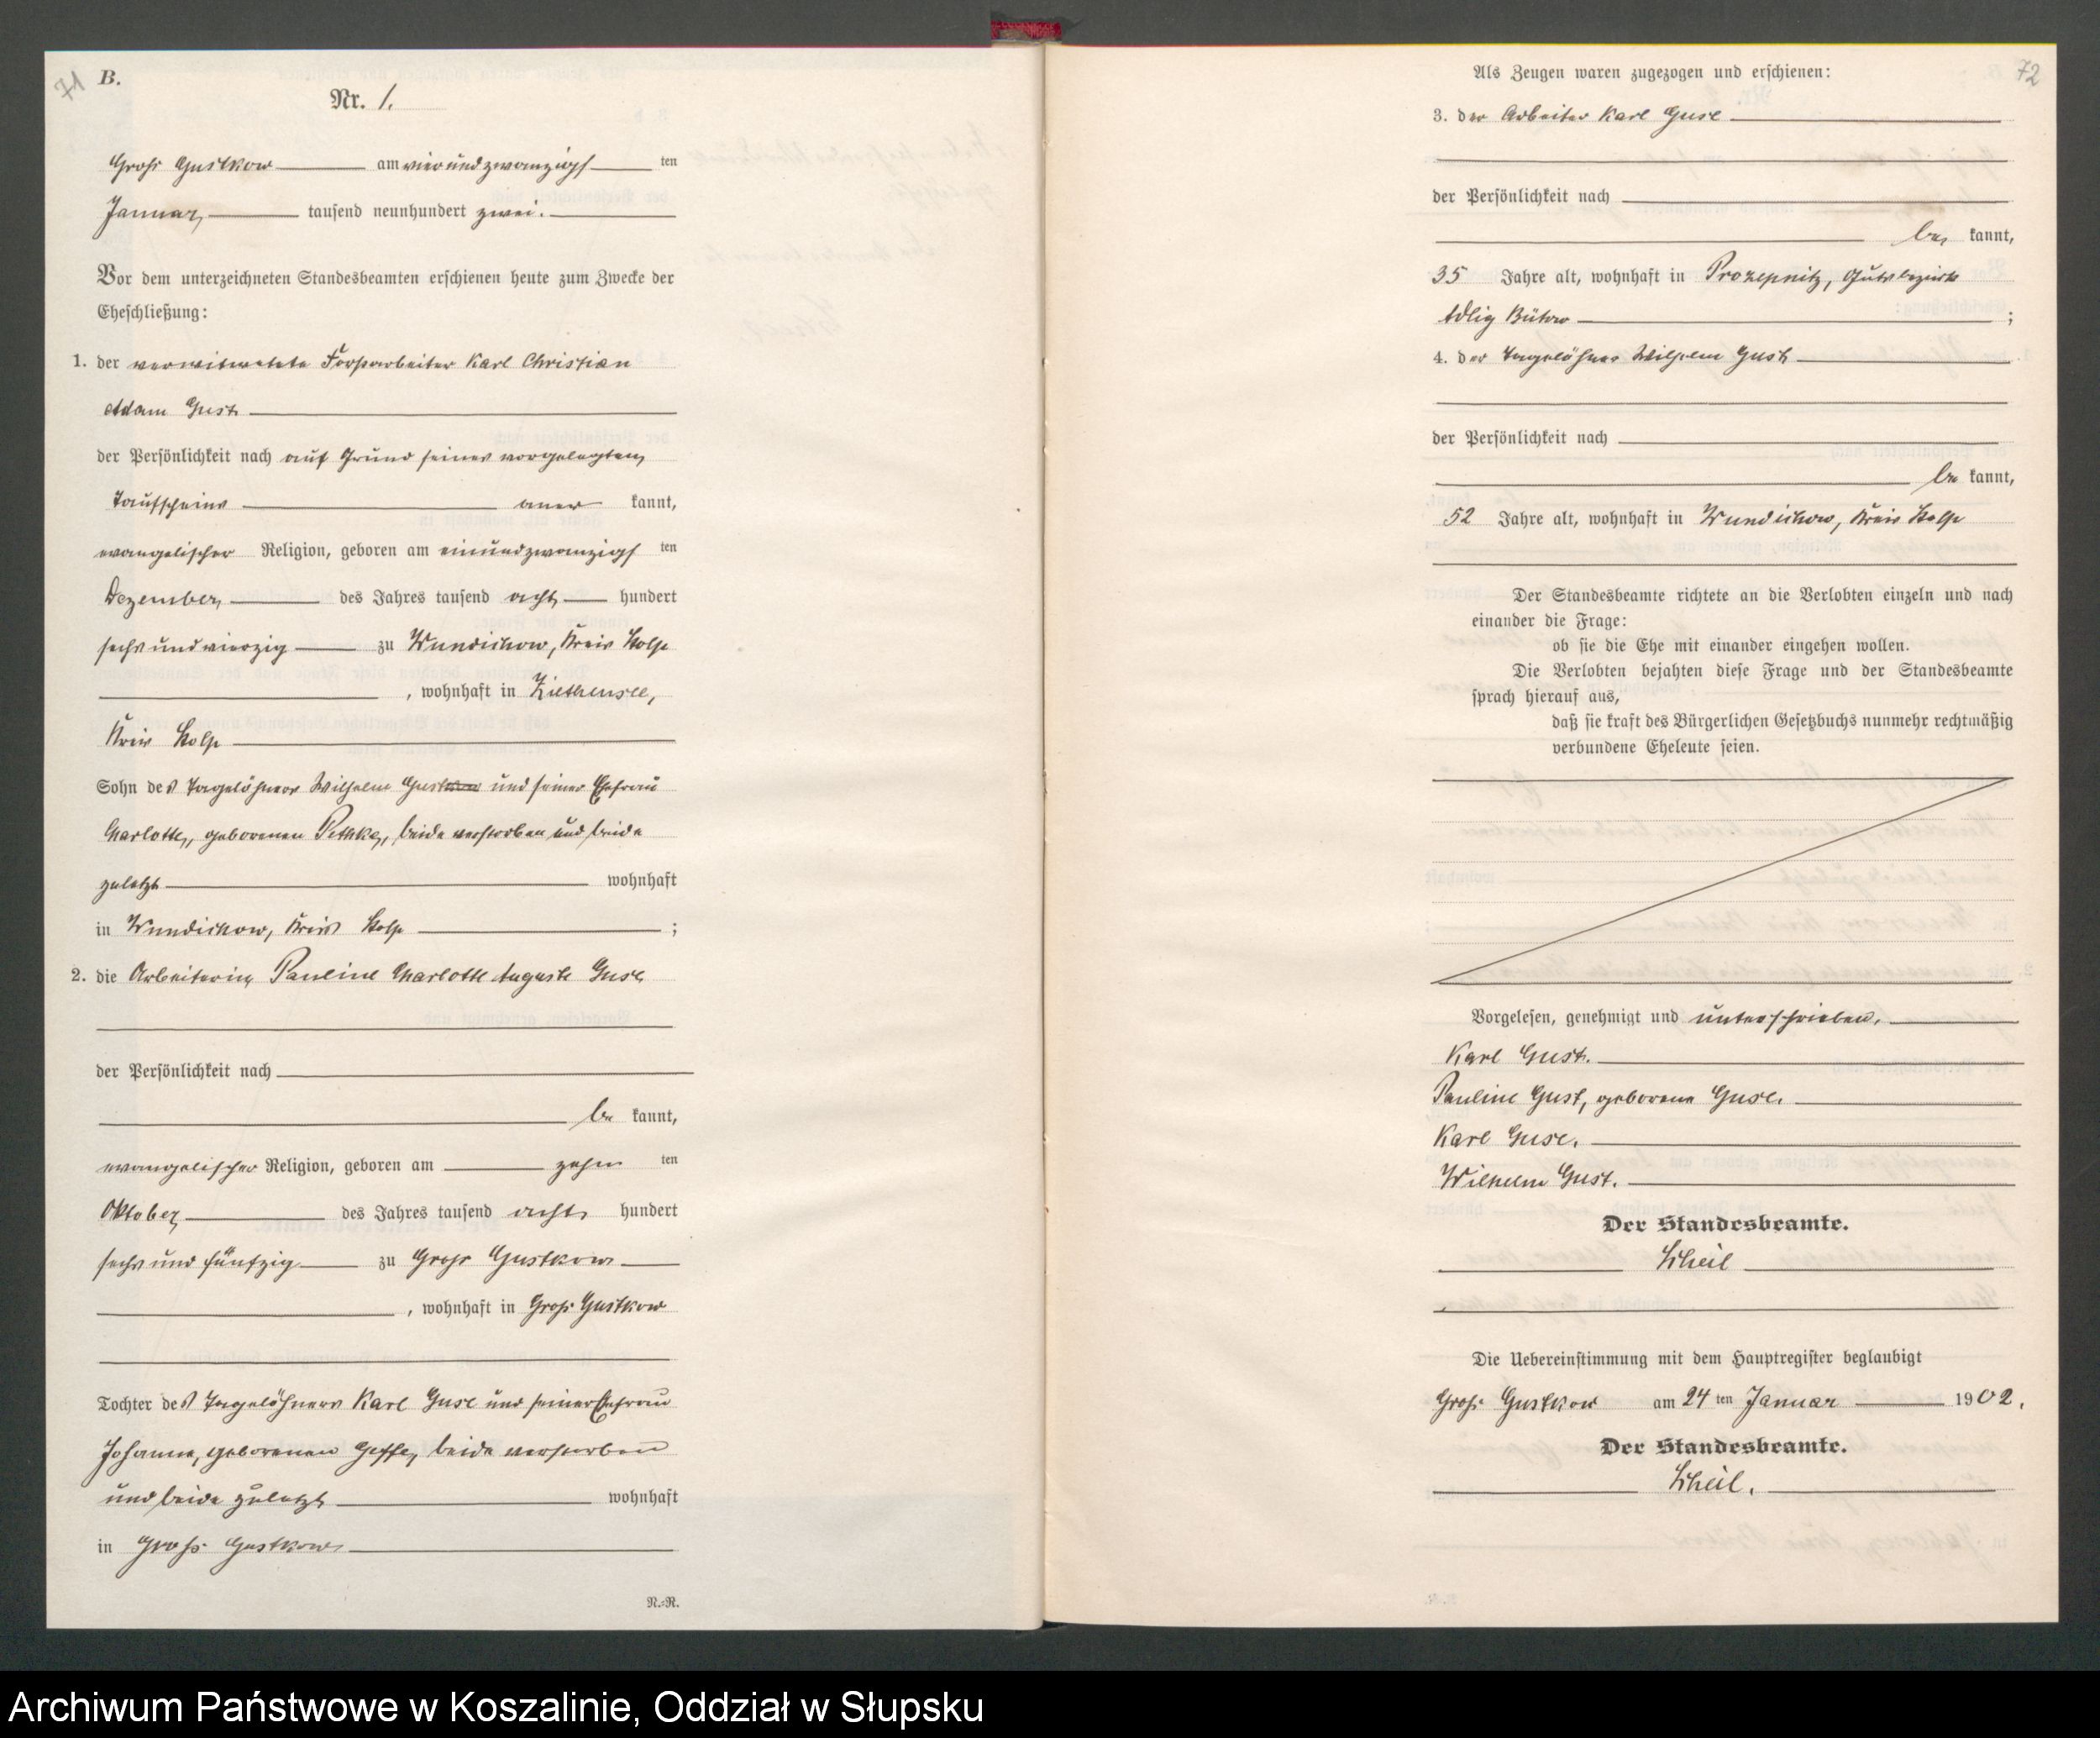 71
B.
Nr. 1.
Groß Gustkow am vierundzwanzigsten
Januar tausend neunhundert zwei.
Vor dem unterzeichneten Standesbeamten erschienen heute zum Zwecke der
Eheschließung:
1. der verwitwetete Forstarbeiter Karl Christian
Adam Gust
der Persönlichkeit nach auf Grund seines vorgelegten
Taufscheins aner kannt,
evangelischer Religion, geboren am einundzwanzigsten
Dezember des Jahres tausend acht hundert
sechs und vierzig zu Wundichow, Kreis Stolp
, wohnhaft in Ziethensee,
Kreis Stolp
Sohn des Tagelöhners Wilhelm Gust und seiner Ehefrau
Charlotte, geborenen Pethke, beide verstorben und beide
zuletzt wohnhaft
in Wundichow, Kreis Stolp ;
2. die Arbeiterin Pauline Charlotte Auguste Guse
der Persönlichkeit nach
be kannt,
evangelischer Religion, geboren am zehn ten
Oktober des Jahres tausend acht hundert
sechs und fünfzig zu Groß Gustkow
, wohnhaft in Groß Gustkow
Tochter des Tagelöhners Karl Guse und seiner Ehefrau
Johanne, geborenen beide verstorben
und beide zuletzt wohnhaft
in Groß Gustkow
N.=R.
72
Als Zeugen waren zugezogen und erschienen:
3. der Arbeiter Karl Guse
der Persönlichkeit nach
be kannt,
35 Jahre alt, wohnhaft in Gutsbezirk
Adlig Bütow ;
4. der Tagelöhner Wilhelm Gust
der Persönlichkeit nach
be kannt,
52 Jahre alt, wohnhaft in Wundichow, Kreis Stolp
Der Standesbeamte richtete an die Verlobten einzeln und nach
einander die Frage:
ob sie die Ehe mit einander eingehen wollen.
Die Verlobten bejahten diese Frage und der Standesbeamte
sprach hierauf aus,
daß sie kraft des Bürgerlichen Gesetzbuchs nunmehr rechtmäßig
verbundene Eheleute seien.
Vorgelesen, genehmigt und unterschrieben.
Karl Gust.
Pauline Gust, geborene Guse.
Karl Guse.
Wilhelm Gust.
Der Standesbeamte.
Scheil
Die Uebereinstimmung mit dem Hauptregister beglaubigt
Groß Gustkow am 24 ten Januar 1902.
Der Standesbeamte.
Scheil.
Archiwum Państwowe w Koszalinie, Oddział w Słupsku